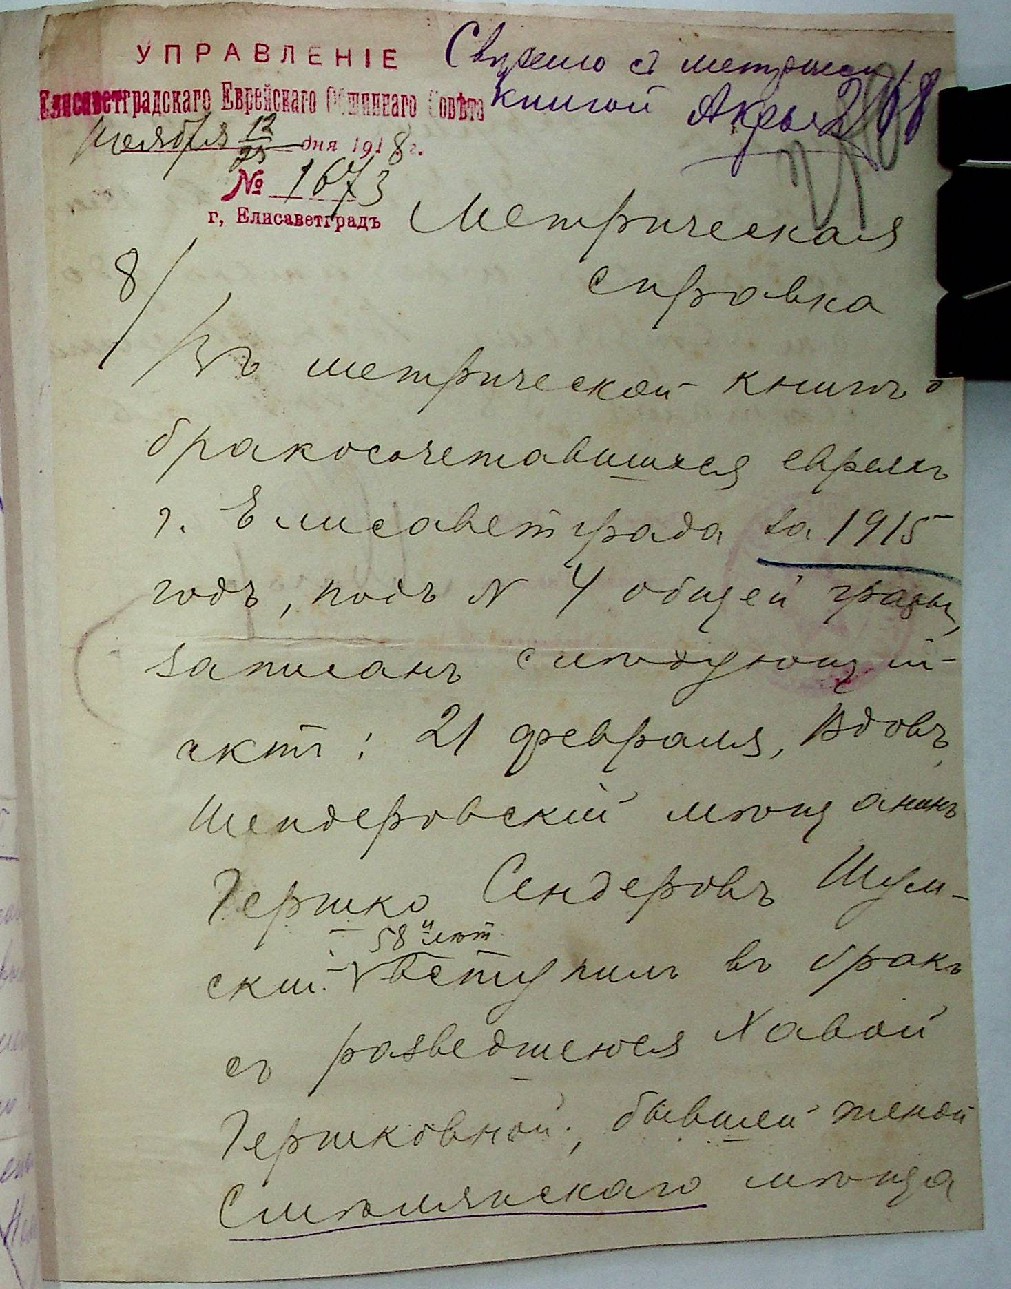 УПРАВЛЕНІЕ
Елисаветградскаго Еврейскаго Общиннаго Совѣта
Ноября 12/25 дня 1918 г.
№ 1673
г. Елисаветградъ
Свѣрено съ метрическ
книгой
Метрическая
справка
8/
Въ метрической книгѣ о
бракосочетавшихся евреяхъ
г. Елисаветграда за 1915
годъ, подъ № 4 общей графы,
записанъ слѣдующій
актъ: 21 февраля, Вдовъ,
Шендеровскій мѣщанинъ
Гершко Сендеровъ Шум-
скій 58и лѣт вступилъ въ бракъ
съ разведшеюся Хавой
Гершковной, бывшей женой
Смѣлянскаго мѣща